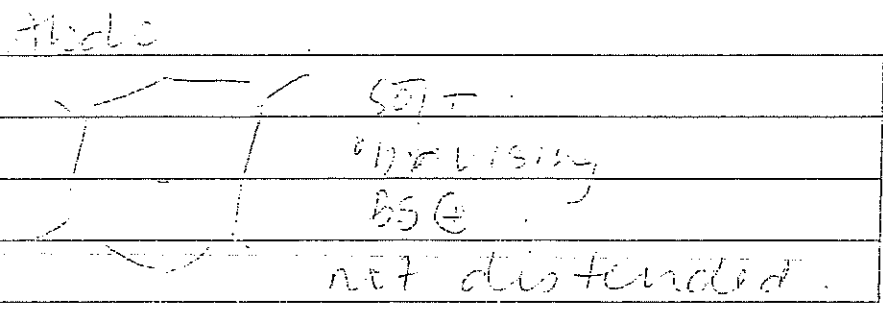 Abdo
Soft.
bruising
BS ⊕.
not distended.